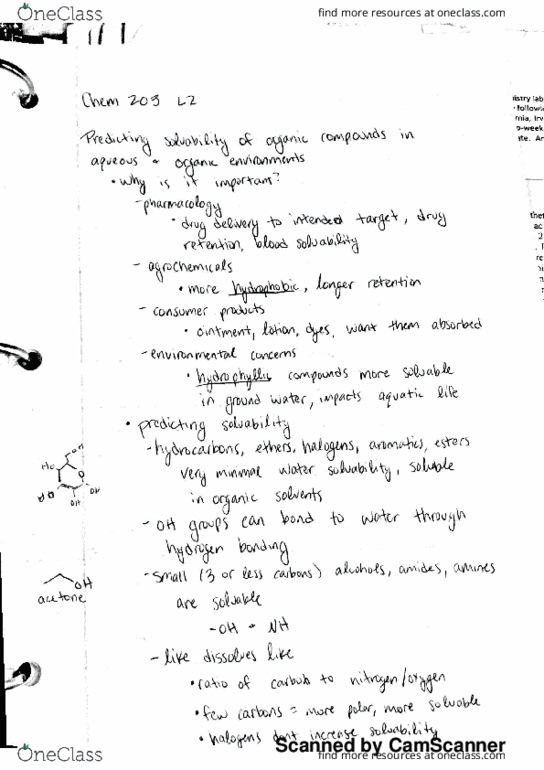 OneClass
find more resources at oneclass.com
Chem 203 L2
Predicting solvability of organic compounds in
aqueous + organic environments
• why is it important?
- pharmacology
• drug delivery to intended target, drug
retention, blood solvability
- agrochemicals
• more hydrophobic, longer retention
- consumer products
• ointment, lotion, dyes, want them absorbed
- environmental concerns
• hydrophyllic compounds more solvable
in ground water, impacts aquatic life
• predicting solvability
- hydrocarbons, ethers, halogens, aromatics, esters
very minimal water solvability, soluble
in organic solvents
- OH groups can bond to water through
hydrogen bonding
- small (3 or less carbons) alcohols, amides, amines
are solvable
- OH + NH
- like dissolves like
• ratio of carbons to nitrogen/oxygen
• few carbons = more polar, more solvable
• halogens dont increase solvability
HO
OH
OH
OH
acetone
istry lab
followi
rnia, Irv
o-week
ite. Ar
thet
ac
2
re
Scanned by CamScanner
OneClass
find more resources at oneclass.com